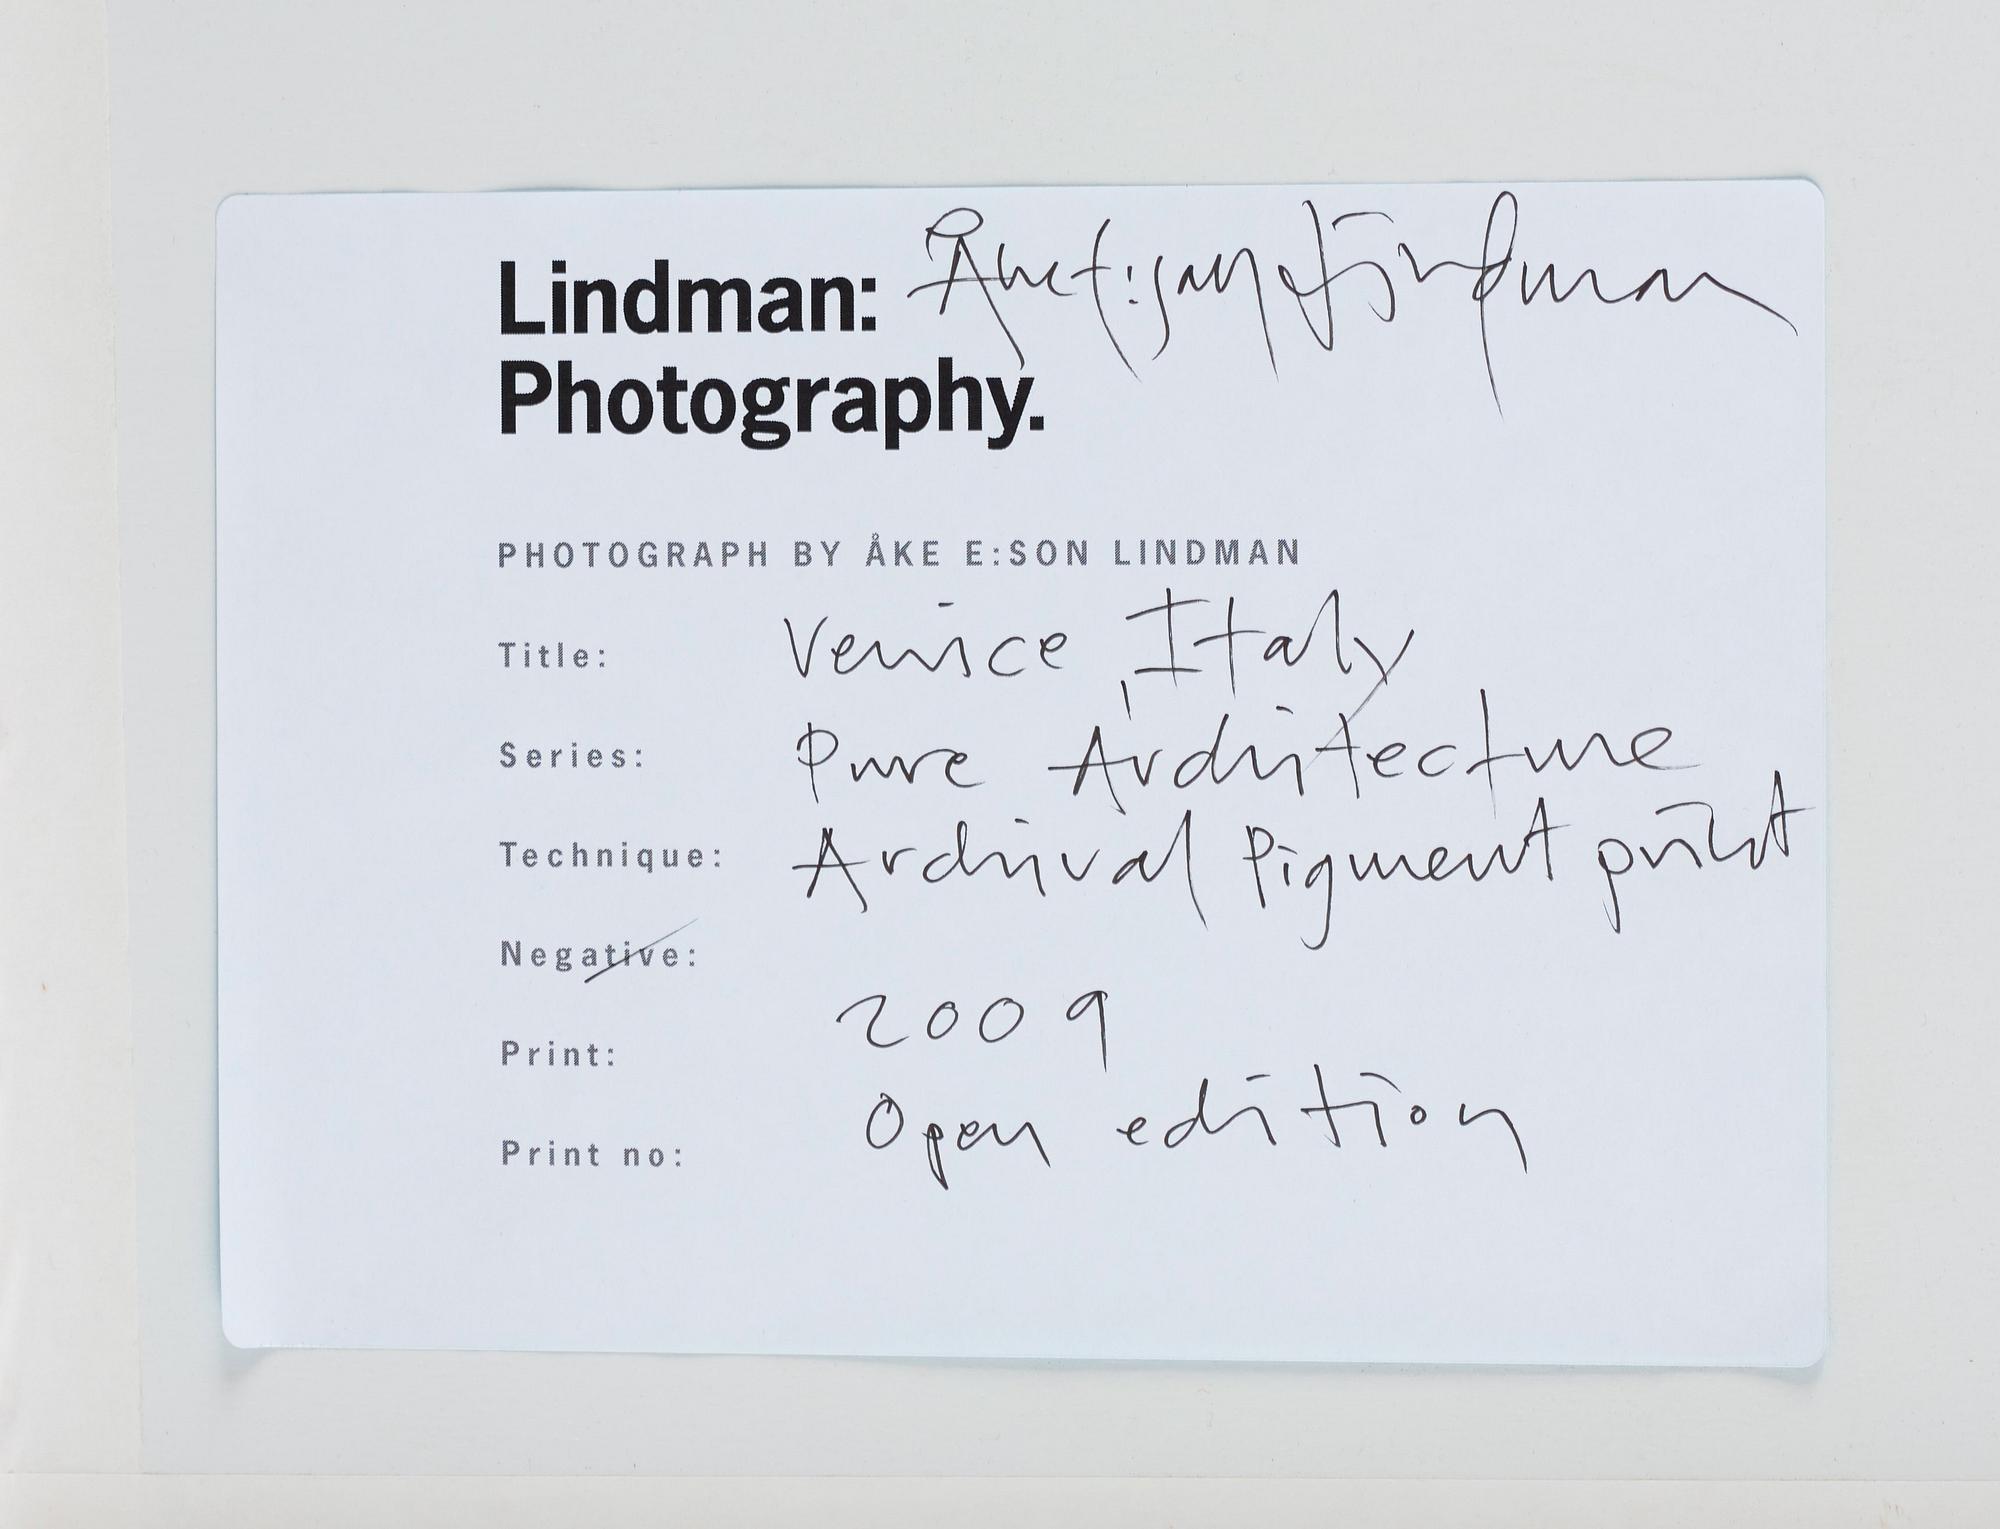 Lindman: Åke E:son Lindman
Photography.
PHOTOGRAPH BY ÅKE E:SON LINDMAN
Title: Venice, Italy
Series: Pure Architecture
Technique: Archival Pigment print
Negative:
Print: 2009
Print no: Open edition